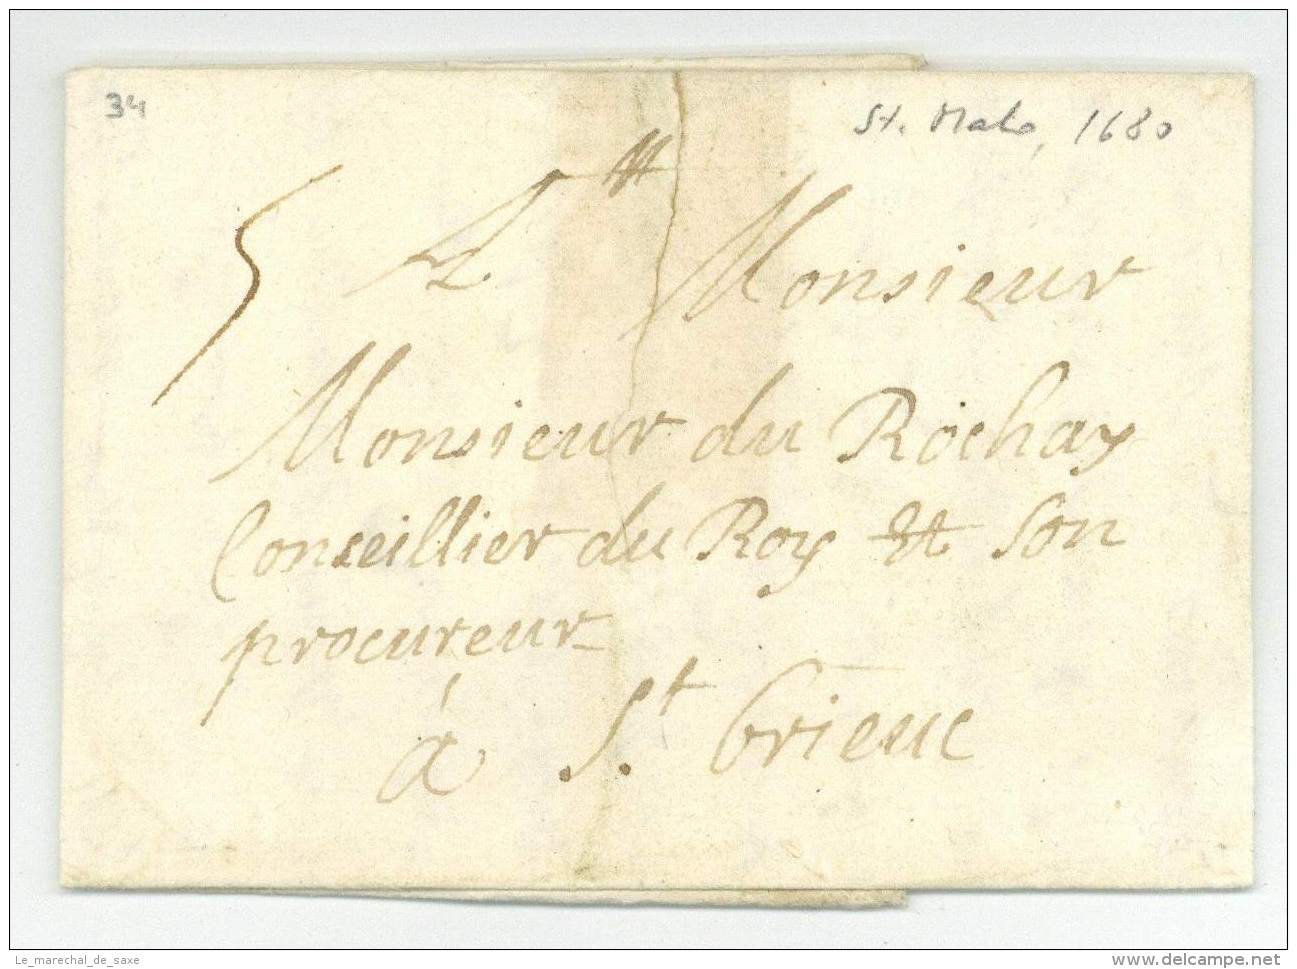 34
St. Malo, 1680
5
Monsieur
Monsieur du Rochay
Conseillier du Roy Et son
procureur
à St brieuc
Le_marechal_de_saxe
www.delcampe.net